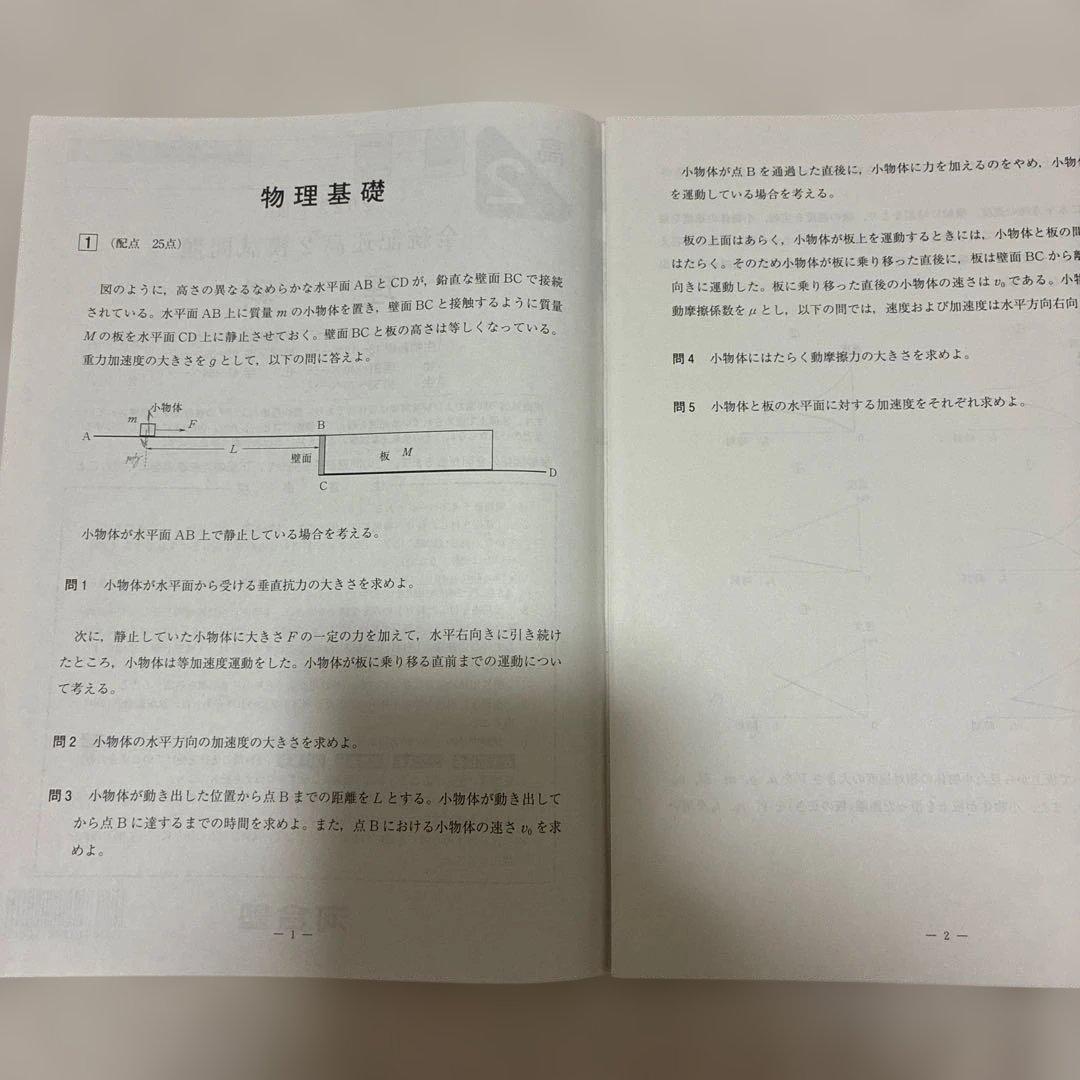 物理基礎
1 (配点 25点)
図のように,高さの異なるなめらかな水平面ABとCDが,鉛直な壁面BCで接続
されている。水平面AB上に質量mの小物体を置き,壁面BCと接触するように質量
Mの板を水平面CD上に静止させておく。壁面BCと板の高さは等しくなっている。
重力加速度の大きさをgとして,以下の問に答えよ。
小物体
m
F
A
B
mg
L
壁面
板 M
C
D
小物体が水平面AB上で静止している場合を考える。
問1 小物体が水平面から受ける垂直抗力の大きさを求めよ。
次に,静止していた小物体に大きさFの一定の力を加えて,水平右向きに引き続け
たところ,小物体は等加速度運動をした。小物体が板に乗り移る直前までの運動につい
て考える。
問2 小物体の水平方向の加速度の大きさを求めよ。
問3 小物体が動き出した位置から点Bまでの距離をLとする。小物体が動き出して
から点Bに達するまでの時間を求めよ。また,点Bにおける小物体の速さv₀を求
めよ。
― 1 ―
小物体が点Bを通過した直後に,小物体に力を加えるのをやめ,小物
を運動している場合を考える。
板の上面はあらく,小物体が板上を運動するときには,小物体と板の間
はたらく。そのため小物体が板に乗り移った直後に,板は壁面BCから
向きに運動した。板に乗り移った直後の小物体の速さはv₀である。小物
動摩擦係数をμとし,以下の問では,速度および加速度は水平方向右向
問4 小物体にはたらく動摩擦力の大きさを求めよ。
問5 小物体と板の水平面に対する加速度をそれぞれ求めよ。
― 2 ―